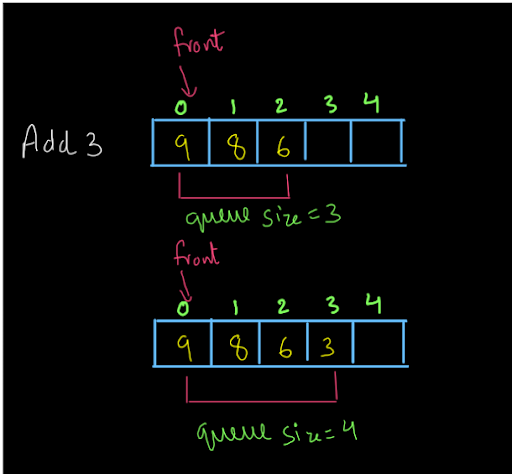 front
0 1 2 3 4
Add 3 9 8 6
queue size = 3
front
0 1 2 3 4
9 8 6 3
queue size = 4